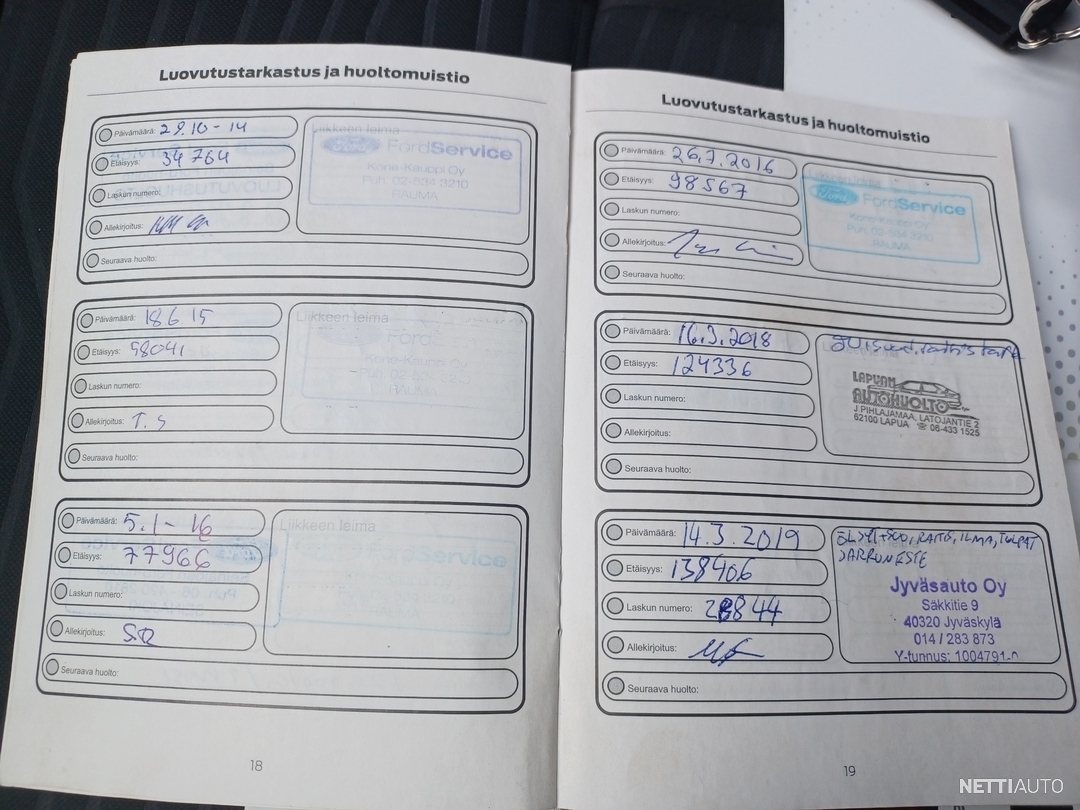 Luovutustarkastus ja huoltomuistio
Päivämäärä: 29.10-14
Etäisyys: 34 764
Laskun numero:
Allekirjoitus:
Seuraava huolto:
Liikkeen leima
Ford FordService
Kone-Kauppi Oy
Puh. 02-534 3210
RAUMA
Päivämäärä: 18.6.15
Etäisyys: 58041
Laskun numero:
Allekirjoitus: T.S
Seuraava huolto:
Liikkeen leima
Ford
Kone-Kauppi Oy
RAUMA
Päivämäärä: 5.1-16
Etäisyys: 77966
Laskun numero:
Allekirjoitus:
Seuraava huolto:
Liikkeen leima
FordService
18
Luovutustarkastus ja huoltomuistio
Päivämäärä: 26.7.2016
Etäisyys: 98567
Laskun numero:
Allekirjoitus:
Seuraava huolto:
Ford FordService
Kone-Kauppi Oy
Puh. 02-534 3210
RAUMA
Päivämäärä: 16.3.2018
Etäisyys: 124336
Laskun numero:
Allekirjoitus:
Seuraava huolto:
LAPUAN
AUTOHUOLTO
J PIHLAJAMAA, LATOJANTIE 2
62100 LAPUA ☎ 06-433 1525
Päivämäärä: 14.3.2019
Etäisyys: 138406
Laskun numero: 28844
Allekirjoitus:
Seuraava huolto:
RAITIS, ILMA, TULPAT
JARRUNESTE
Jyväsauto Oy
Säkkitie 9
40320 Jyväskylä
014 / 283 873
Y-tunnus: 1004791-0
19
NETTIAUTO